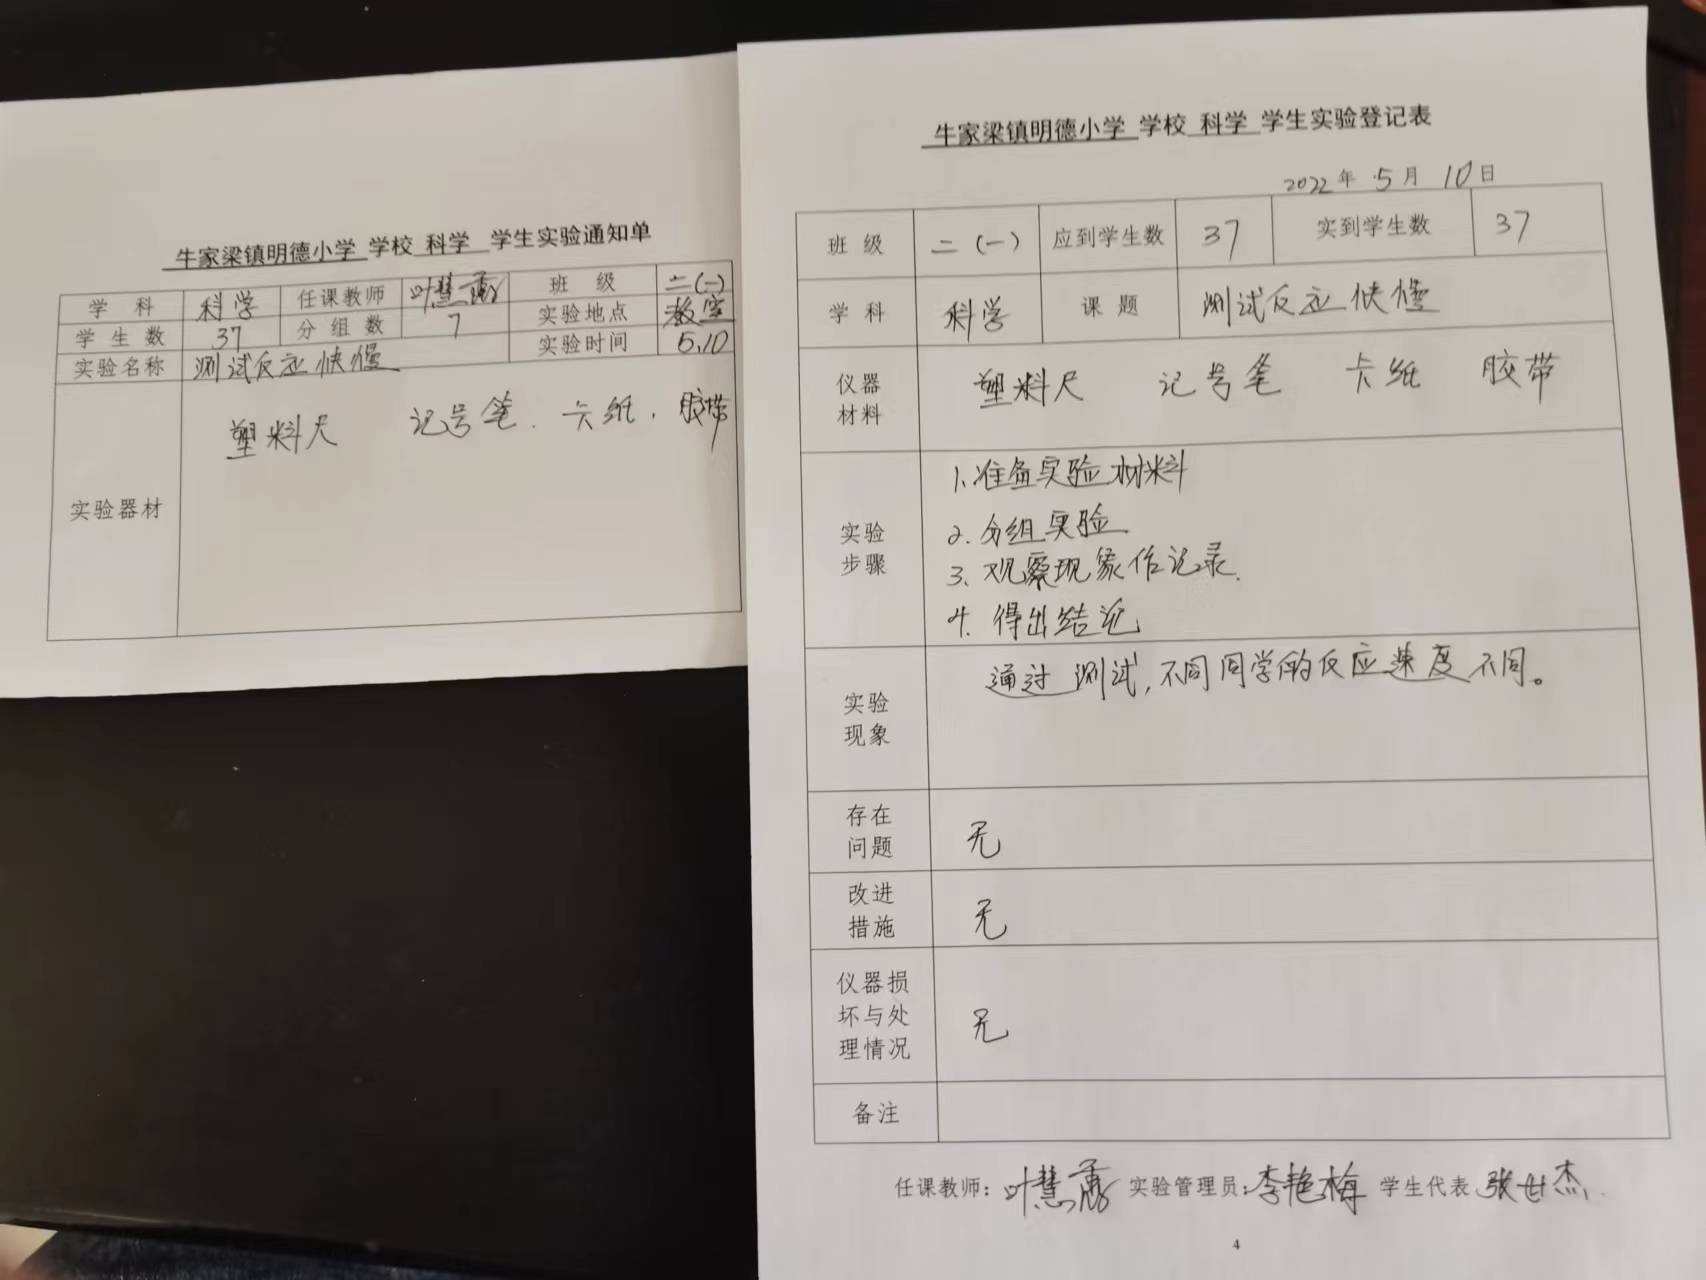 牛家梁镇明德小学 学校 科学 学生实验通知单
学科 科学 任课教师 叶慧 班级 二(一)
学生数 37 分组数 7 实验地点 教室
实验名称 测试反应快慢 实验时间 5.10
实验器材 塑料尺 记号笔. 卡纸. 胶带
牛家梁镇明德小学 学校 科学 学生实验登记表
2022年 5月 10日
班级 二(一) 应到学生数 37 实到学生数 37
学科 科学 课题 测试反应快慢
仪器
材料
塑料尺 记号笔 卡纸 胶带
实验
步骤
1.准备实验材料
2.分组实验
3.观察现象作记录.
4.得出结论
实验
现象
通过测试,不同同学的反应速度不同。
存在
问题
无
改进
措施
无
仪器损
坏与处
理情况
无
备注
任课教师: 叶慧 实验管理员: 李艳梅 学生代表 张世杰
4